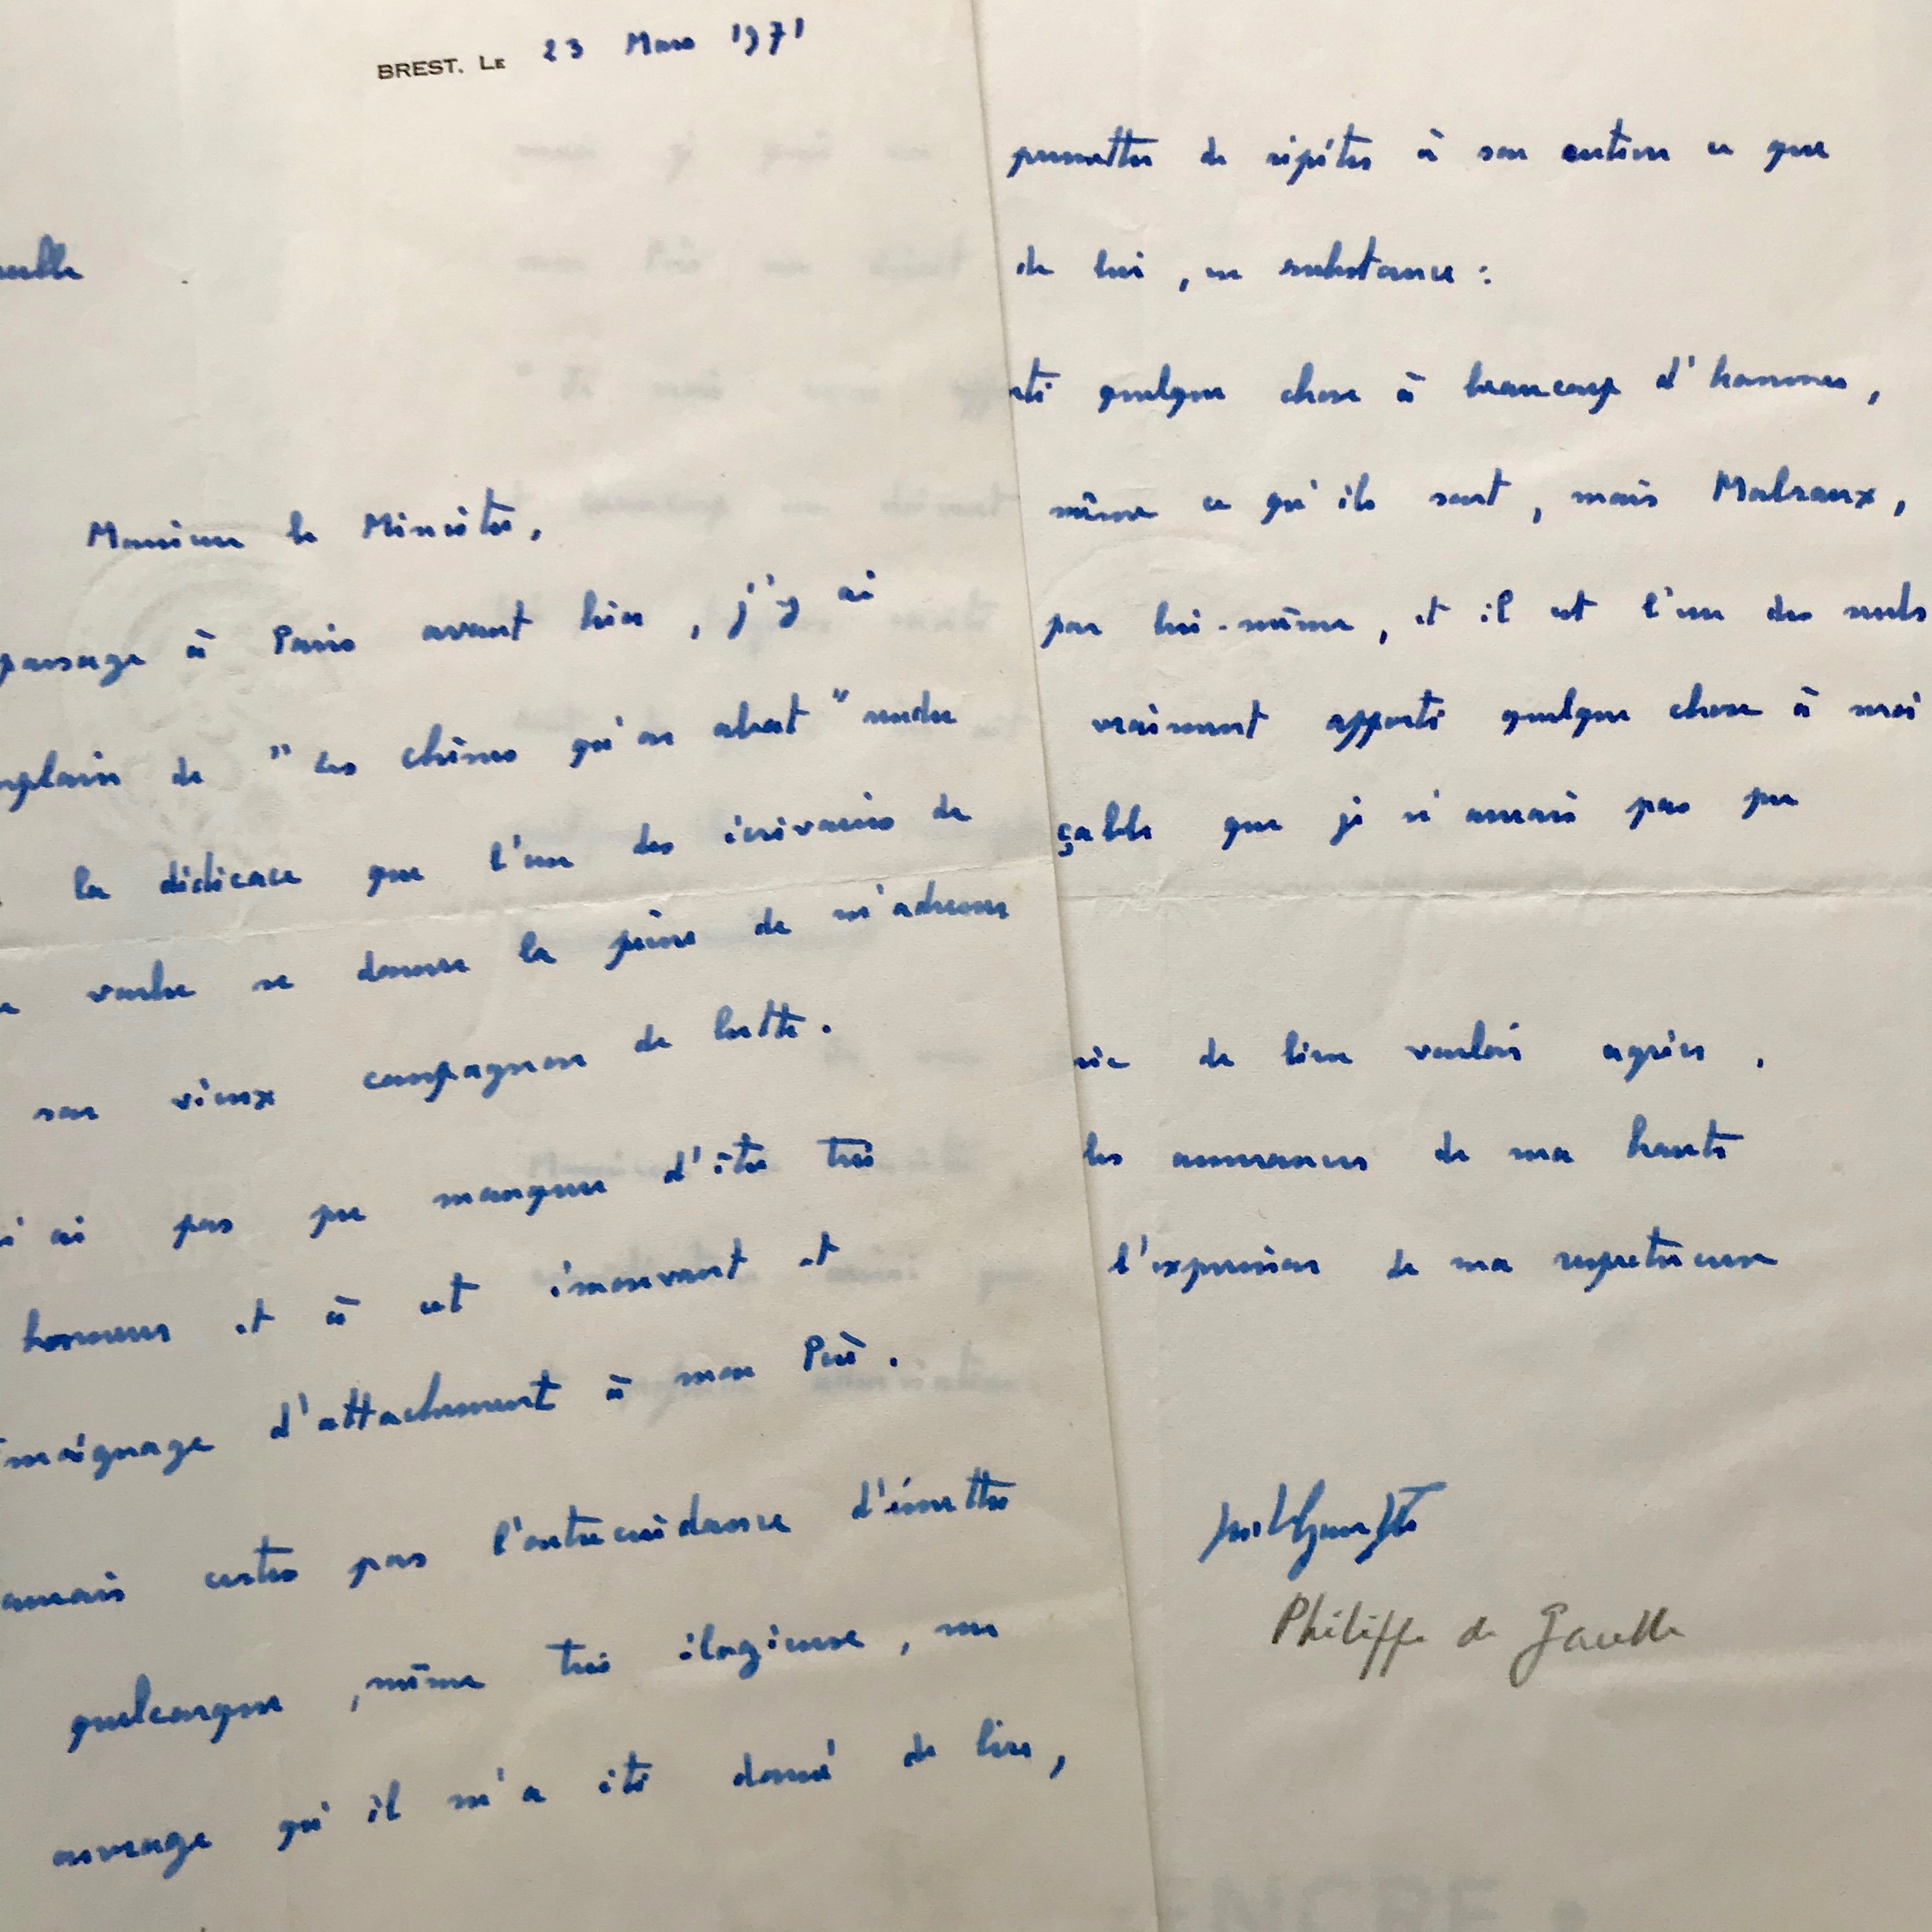 BREST. LE 23 Mars 1971
Monsieur le Ministre,
passage à Paris avant hier, j'y ai
de "Les chênes qu'on abat" rendu
la dédicace que l'un des écrivains de
veuille se donner la peine de m'adresser
son vieux compagnon de lutte.
ai pas pu manquer d'être très
honneur et à cet émouvant et
d'attachement à mon Père.
aurais certes pas l'outrecuidance d'émettre
quelconque, même très élogieuse, sur
ouvrage qu'il m'a été donné de lire,
permettre de répéter à son auteur ce que
de lui, en substance :
quelque chose à beaucoup d'hommes,
même ce qu'ils sont, mais Malraux,
par lui-même, et il est l'un des seuls
vraiment apporté quelque chose à moi
que je n'aurais pas pu
de bien vouloir agréer,
les assurances de ma haute
l'expression de ma respectueuse
Philippe de Gaulle
ENCRE